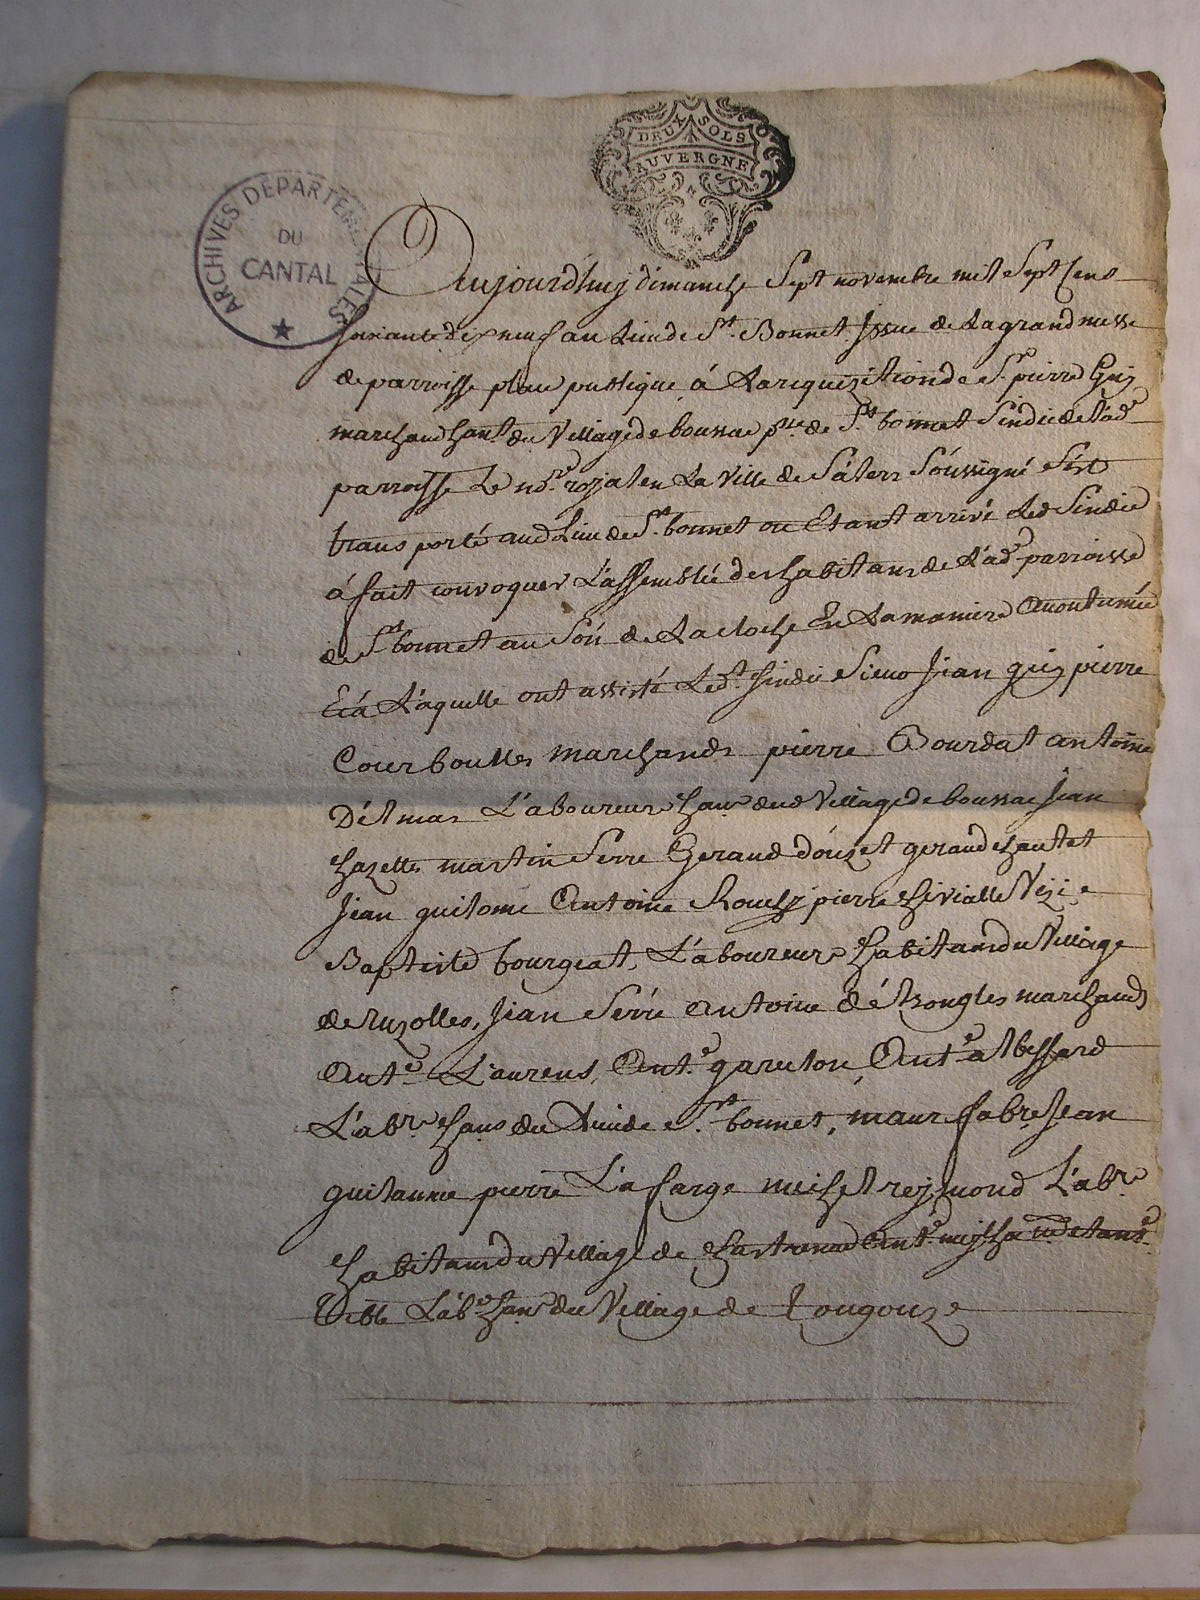 DEUX SOLS
AUVERGNE
ARCHIVES DEPARTEMENTALES
DU
CANTAL
Aujourd'huy dimanche Sept novembre mil Sept Cens
soixante dix neuf au Lieu de St. Bonnet Issue de La grand messe
de parroisse place publique, á La requizition de Sr. pierre Guy
marchand hant. du Village de boussac psse. de St. bonnet Sindic de Lade.
parroisse Le nore. royal en La Ville de Salers Soussigné S'est
transporté aud Lieu de St. bonnet ou Etant arrivé Led Sindic
á fait convoquer L'assemblée des habitans de L'ade. parroisse
de St. bonnet au Son de La cloche En La maniere accoutumée
Et á Laquelle ont assisté Ledt. Sindic Sieur Jean guy pierre
Courboulles marchands pierre Bourdat antoine
Délmas L'aboureurs hans. dud Village de boussac Jean
hazelles martin Serre Geraud douzet geraud hautet
Jean guilome Antoine Rouchy pierre hivialle
Baptiste bourgeat, L'aboureurs habitans du Village
de Ruzolles, Jean Serre Antoine marchands
Ante. Laurens, Ant.e garuton, Ant.e albessard
L'abrs. hans du Lieu de St. bonnet, maur fabre Jean
guilaume pierre Lafarge michel reymond L'abrs.
habitans du Village de Ant.e
L'abs. hans du Village de Lougouze